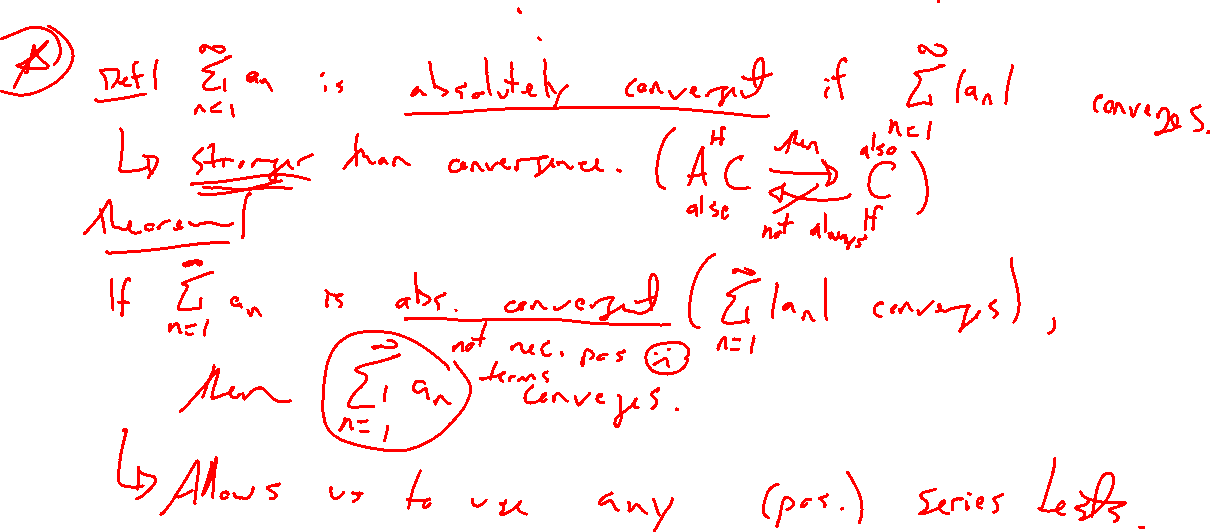 A Def| ∞∑n=1 an is absolutely convergent if ∞∑n=1 |an| converges.
↳ stronger than convergence. (If AC then ⟶ also C) (also AC ⟵ not always If C)
Theorem|
If ∞∑n=1 an is abs. convergent (∞∑n=1 |an| converges),
not nec. pos terms
then ∞∑n=1 an converges.
↳ Allows us to use any (pos.) series tests.